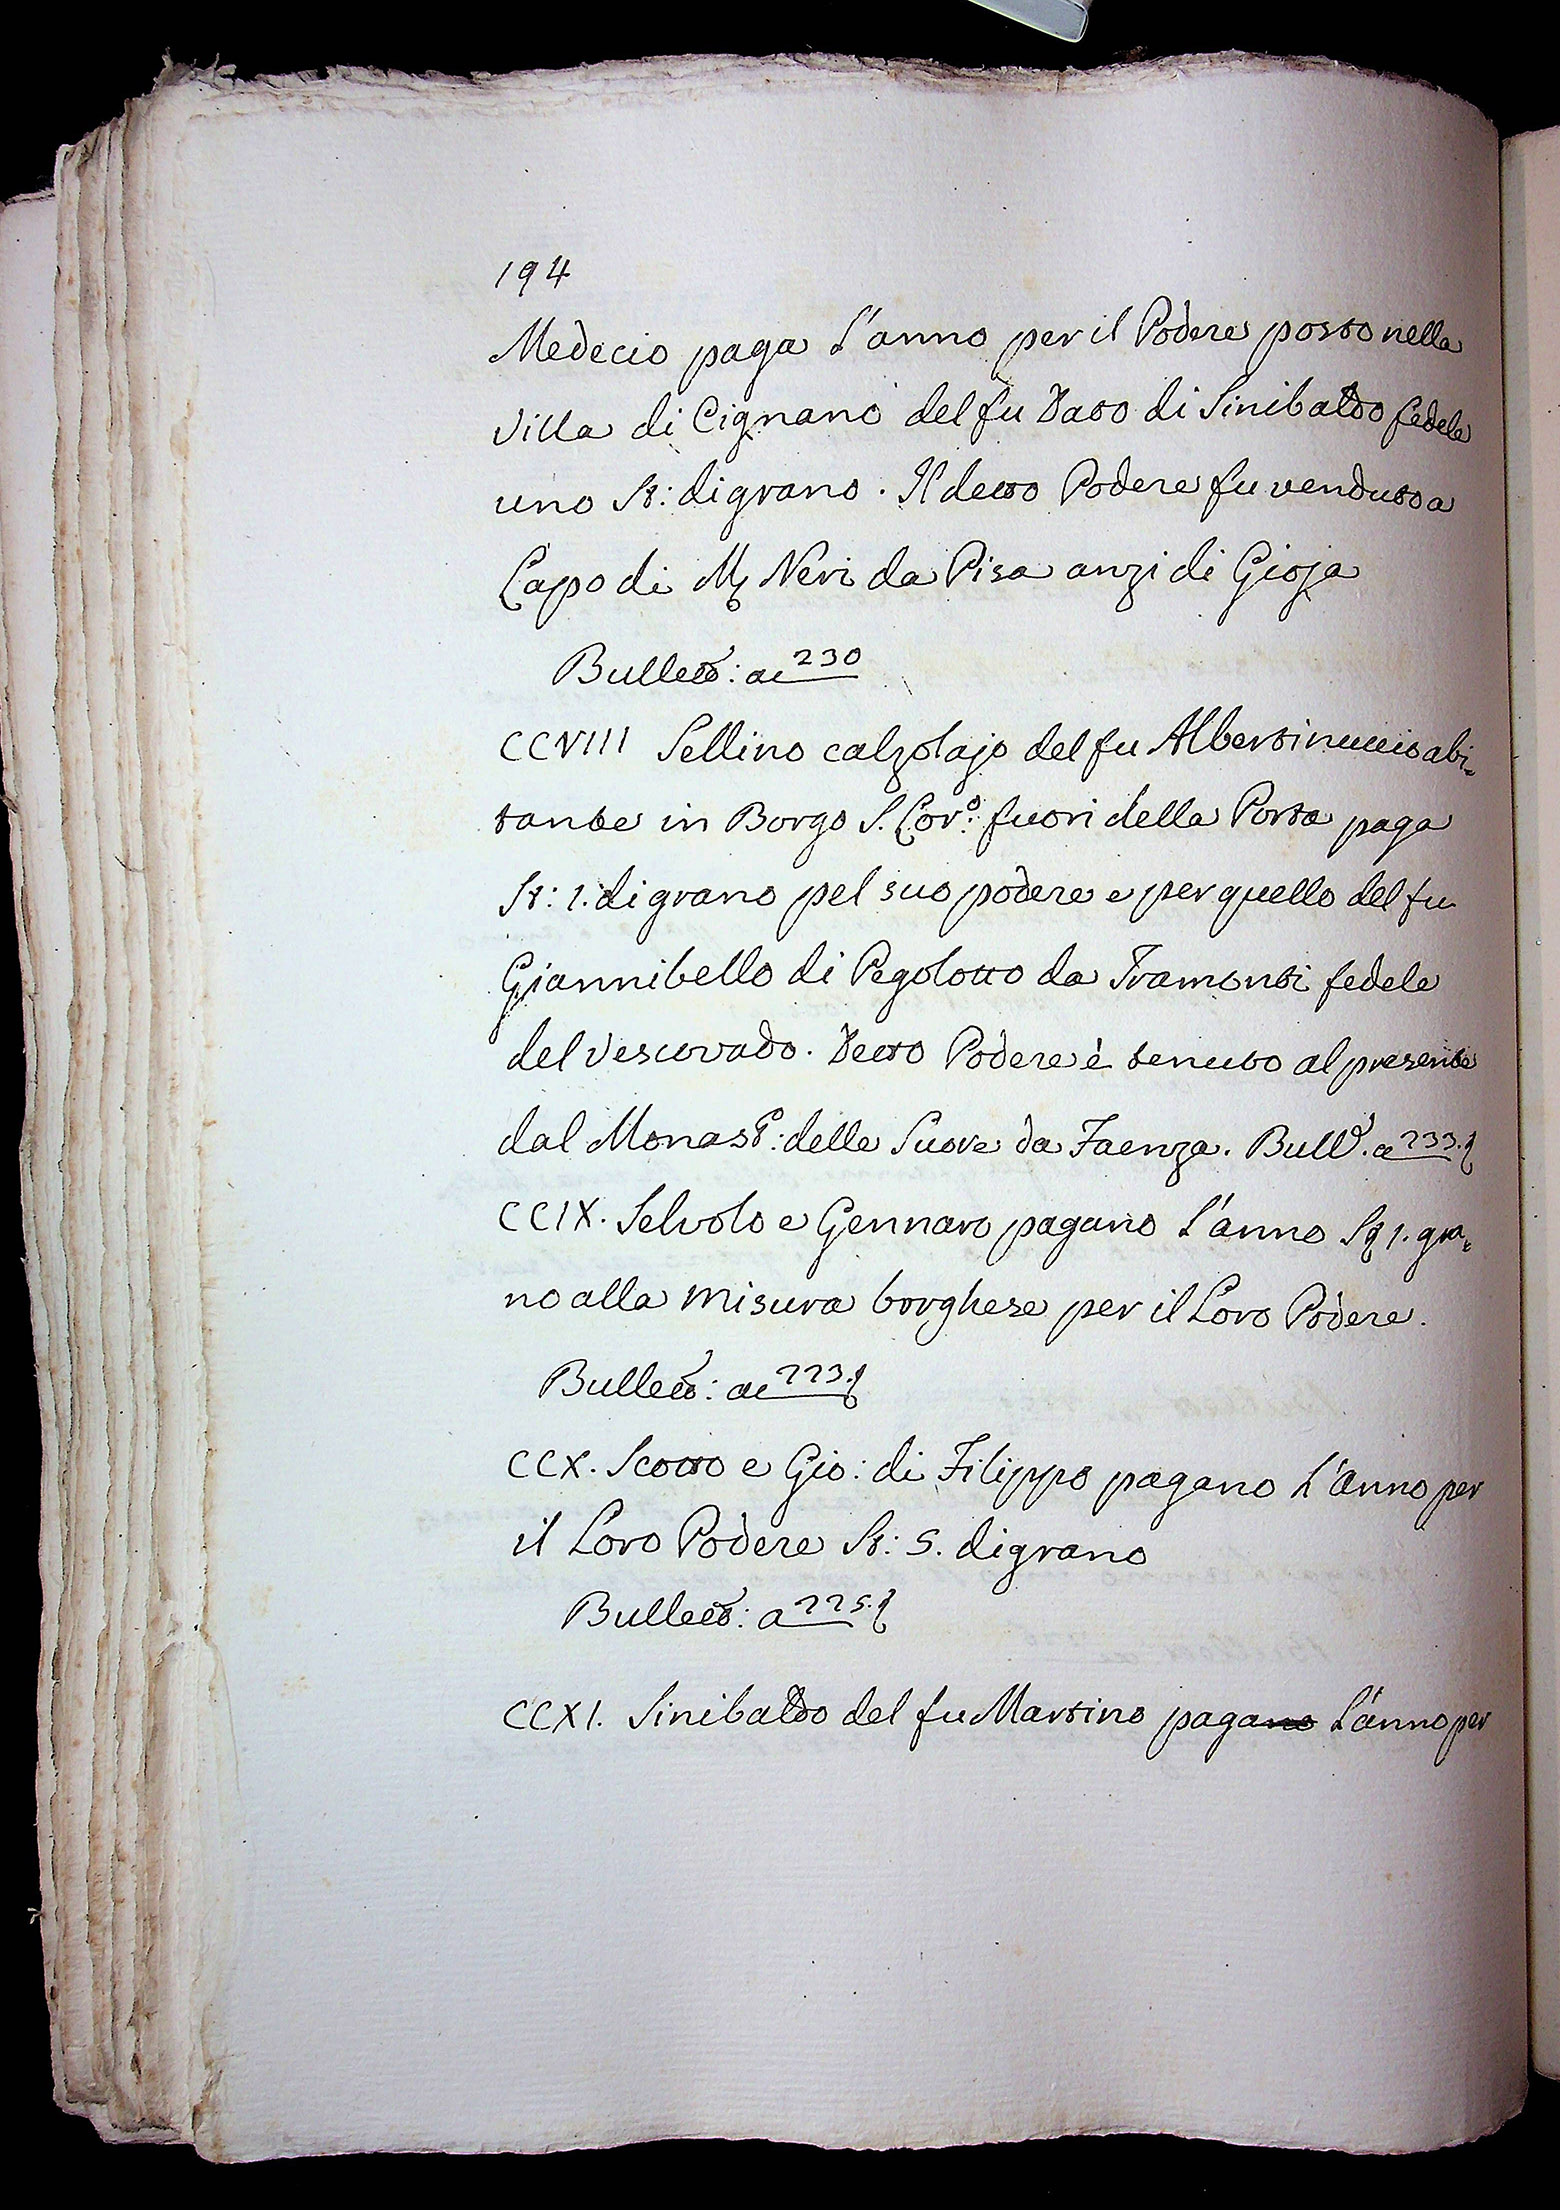 194
Medecio paga l'anno per il Podere posto nella
Villa di Cignano del fu Dato di Sinibaldo fedele
uno St: di grano. Il detto Podere fu venduto a
Lapo di M Neri da Pisa anzi di Gioja
Bullett: a 230
CCVIII Sellino calzolajo del fu Albertinuccio abi-
tante in Borgo S. Lor.º fuori della Porta paga
St: 1. di grano pel suo podere e per quello del fu
Giannibello di Pegolotto da Tramonti fedele
del Vescovado. Detto Podere è tenuto al presente
dal Monast: delle Suore da Faenza. Bull. a 233.
CCIX. Selvolo e Gennaro pagano l'anno St 1. gra-
no alla misura borghese per il Loro Podere.
Bullett: a 223.
CCX. Scotto e Gio: di Filippo pagano l'Anno per
il Loro Podere St: 5. di grano
Bullett: a 225.
CCXI. Sinibaldo del fu Martino pagano l'anno per